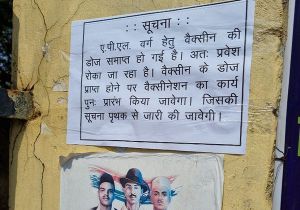 : : सूचना : :
ए.पी.एल. वर्ग हेतु वैक्सीन की
डोज समाप्त हो गई है। अतः प्रवेश
रोका जा रहा है। वैक्सीन के डोज
प्राप्त होने पर वैक्सीनेशन का कार्य
पुनः प्रारंभ किया जावेगा। जिसकी
सूचना पृथक से जारी की जावेगी।